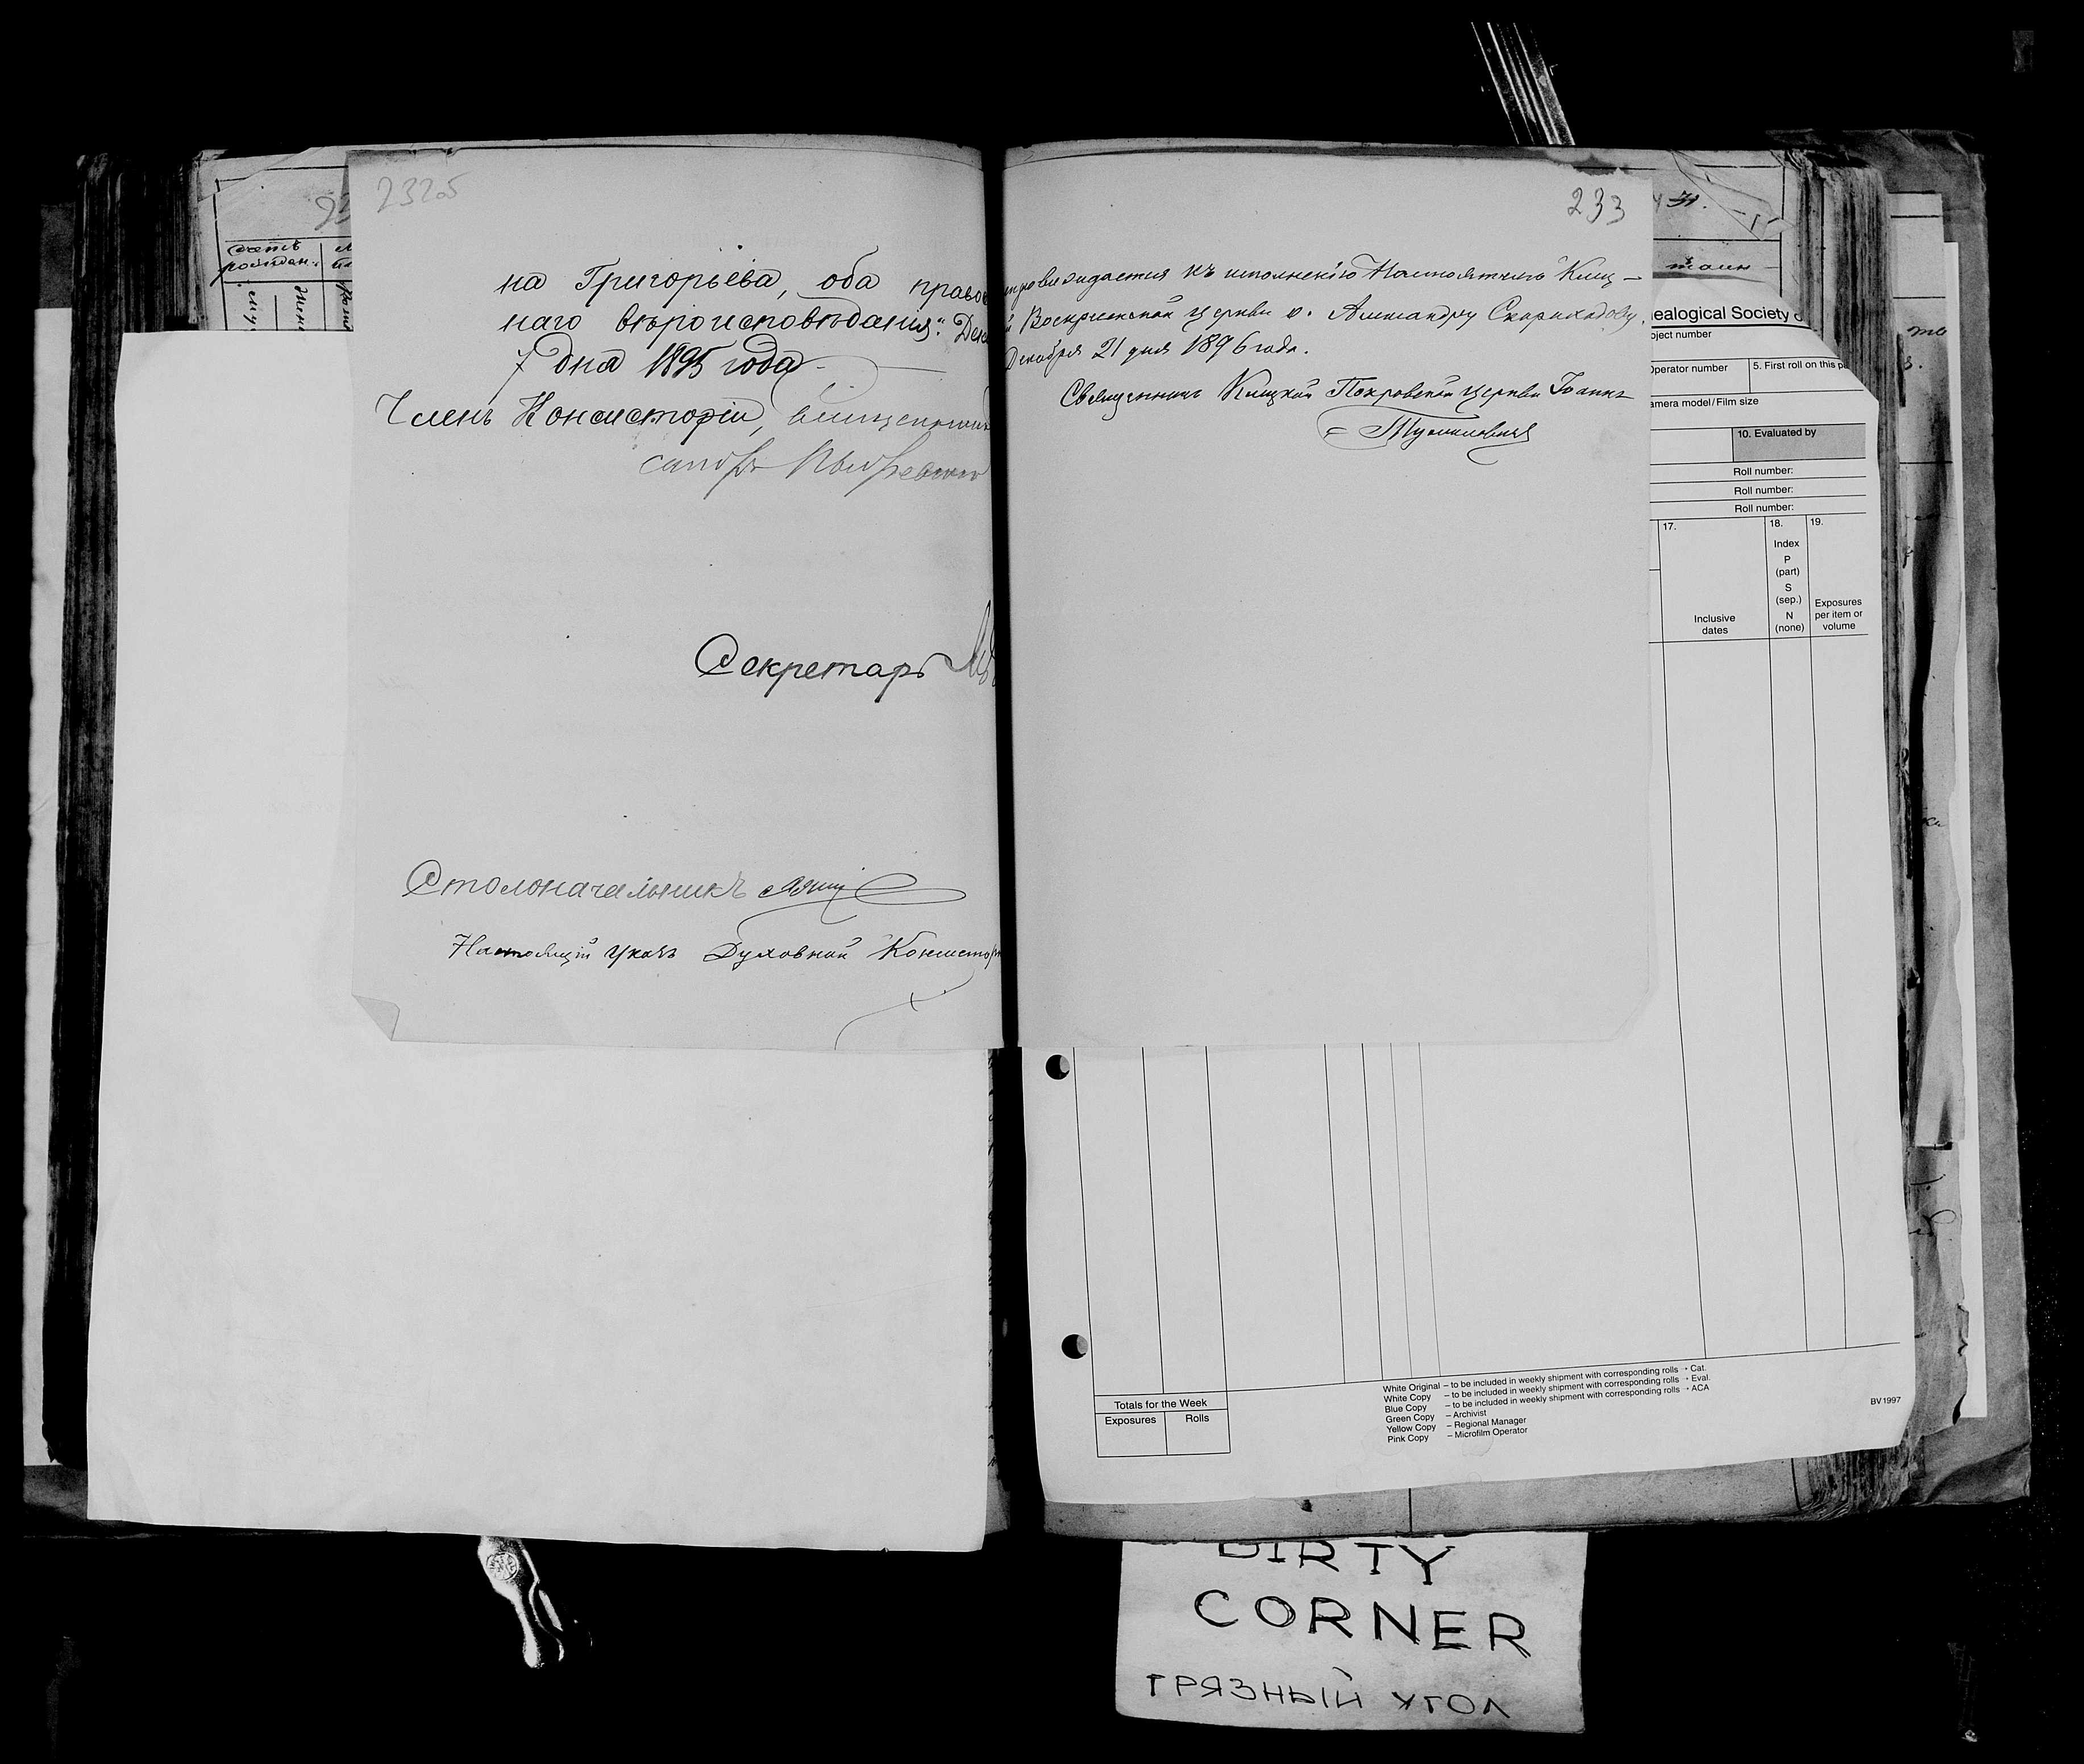 232об
на Григорьева, оба правос
наго вѣроисповѣданія." Дека
7 дня 1895 года
Членъ Консисторіи, священник
Секретарь
Столоначальникъ
Настоящій Указъ Духовной Консистор
233
препровождается къ исполненію Настоятелю Клиц-
й Воскресенской церкви о. Александру Скороходову.
Декабря 21 дня 1896 года.
Священникъ Клицкой Покровской церкви Іоаннъ
счетъ
рождаю
ealogical Society o
oject number
Operator number
5. First roll on this pa
amera model/Film size
10. Evaluated by
Roll number:
Roll number:
Roll number:
17.
18.
19.
Index
P
(part)
S
(sep.)
N
(none)
Inclusive
dates
Exposures
per item or
volume
Totals for the Week
Exposures
Rolls
White Original – to be included in weekly shipment with corresponding rolls • Cat.
White Copy – to be included in weekly shipment with corresponding rolls • Eval.
Blue Copy – to be included in weekly shipment with corresponding rolls • ACA
Green Copy – Archivist
Yellow Copy – Regional Manager
Pink Copy – Microfilm Operator
BV1997
DIRTY
CORNER
ГРЯЗНЫЙ УГОЛ